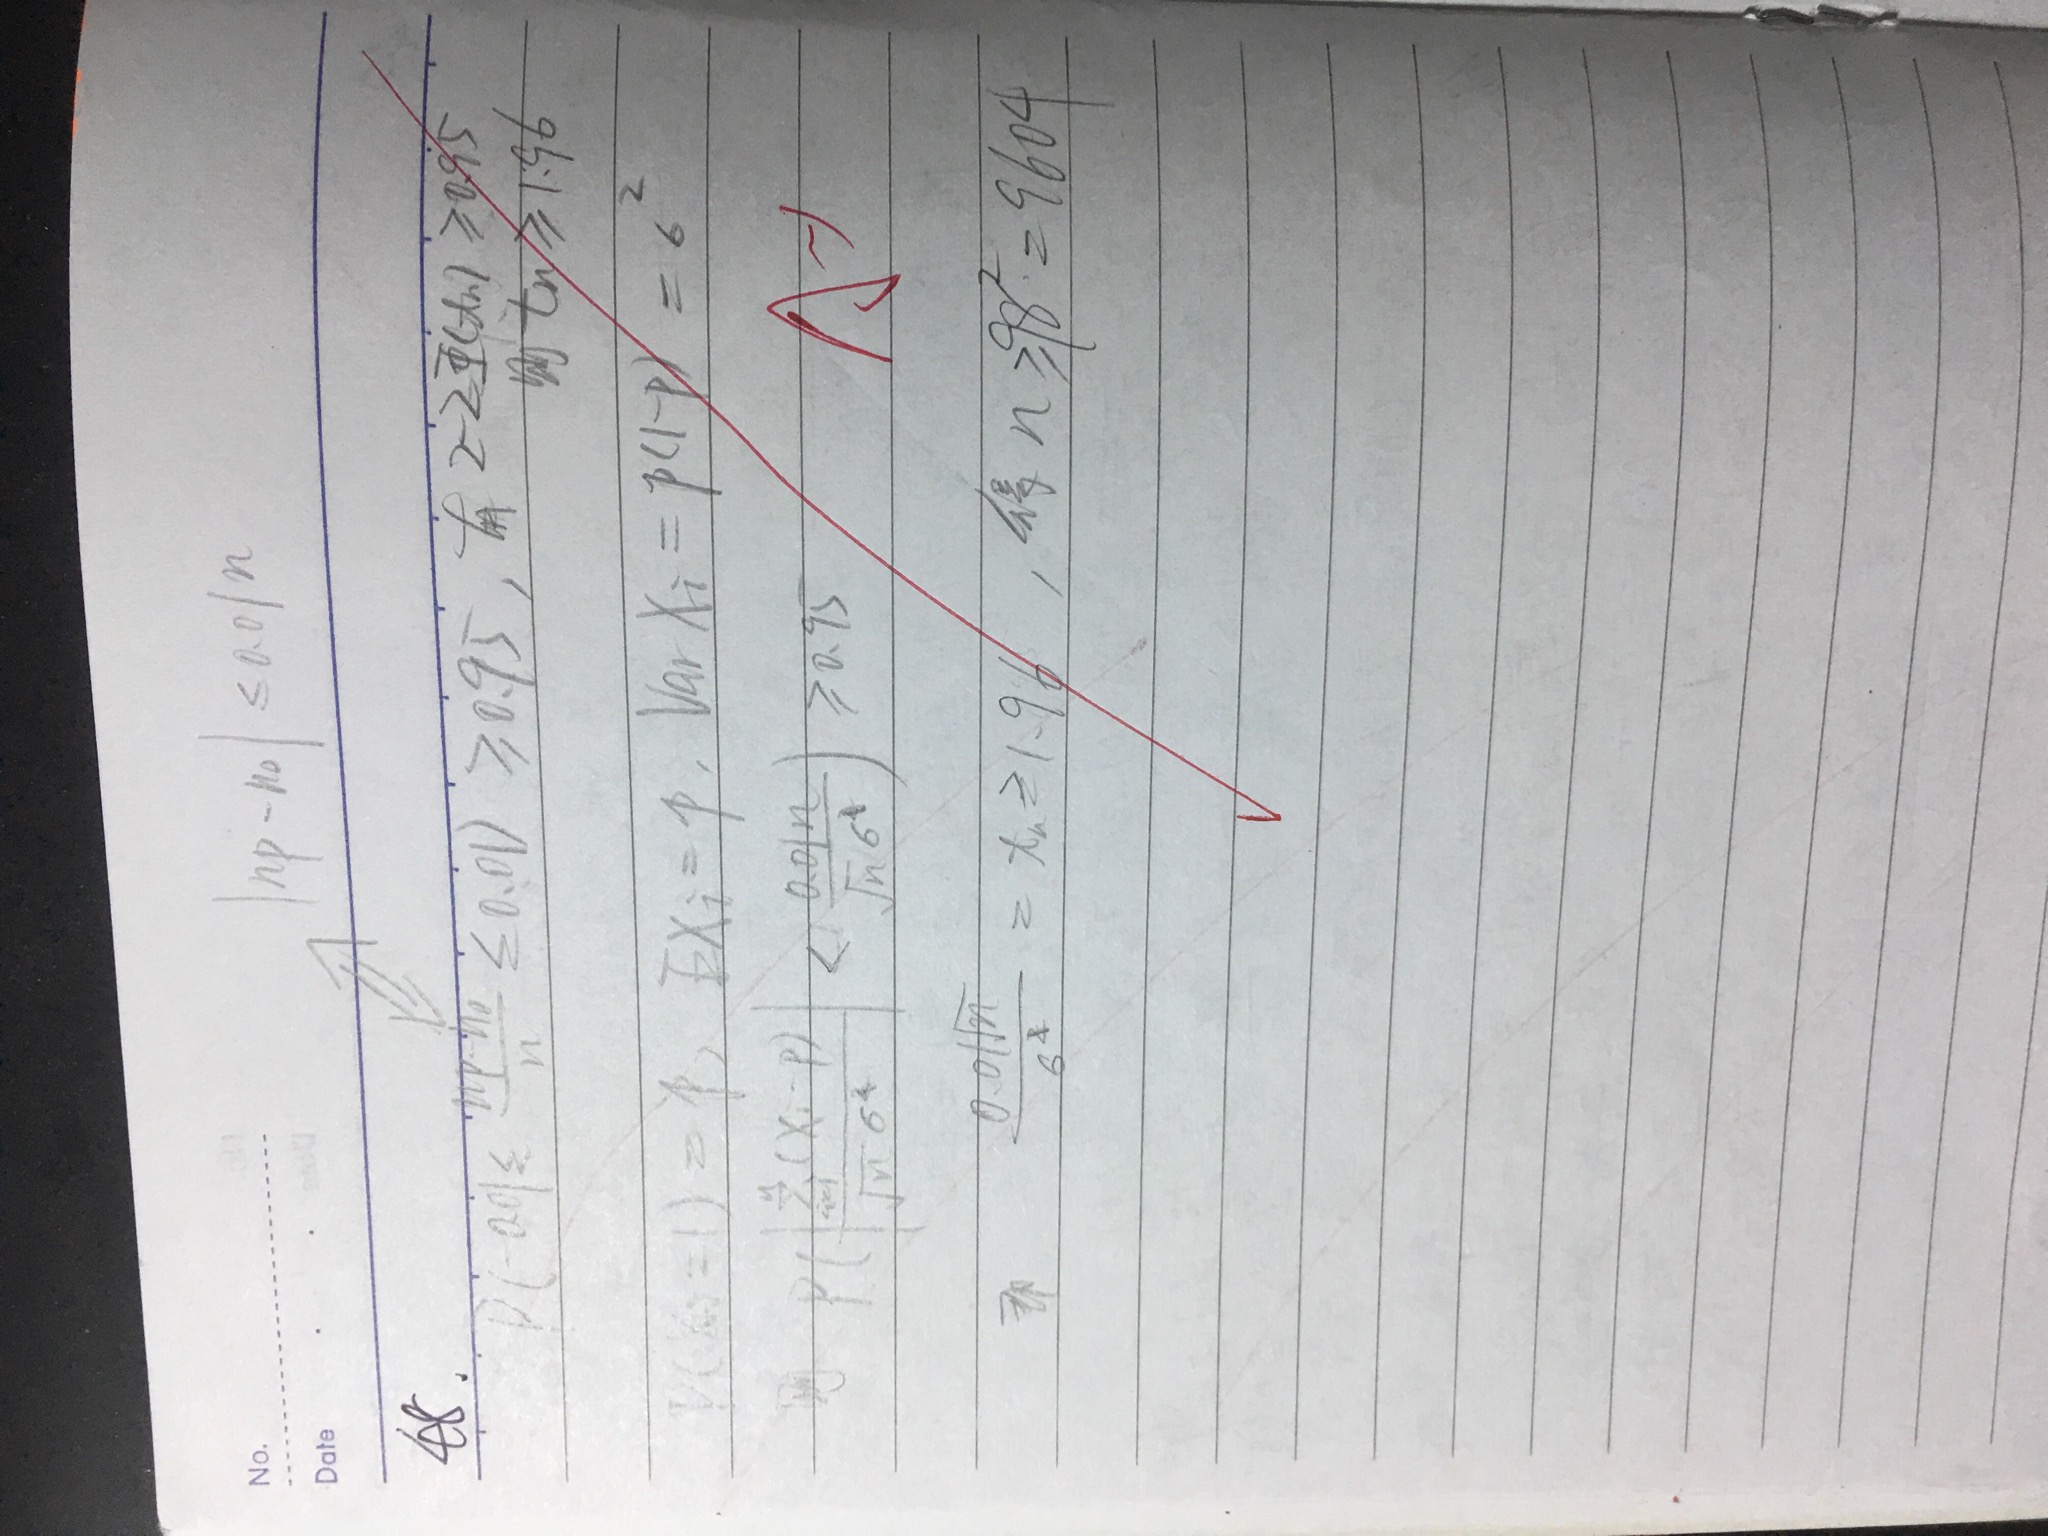 No.
Date
|np-n₀| ≤ 0.01n
48.
P(-0.01 ≤ \frac{np-n₀}{n} ≤ 0.01) ≥ 0.95, 有 2-2Φ(tn) ≥ 0.95
则 tn ≥ 1.96
P(Xi=1) = p, EXi = p, VarXi = p(1-p) = σ²
则 P(|\frac{\sum_{i=1}^{n}(Xi-p)}{√n σ}| < \frac{0.01n}{√n σ}) ≥ 0.95
A-
即 \frac{0.01√n}{σ} = tn ≥ 1.96, 得 n ≥ 98² = 9604